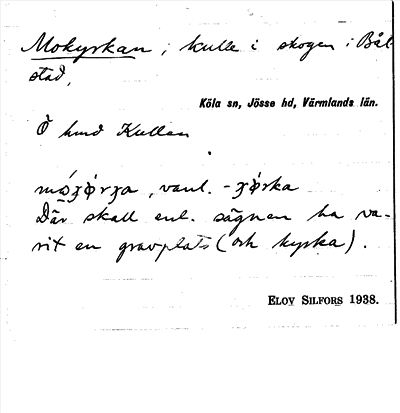 Mokyrkan, kulle i skogen i Bål-
stad,
Köla sn, Jösse hd, Värmlands län.
Ö hmd Kullen
, vanl.
Där skall enl. sägnen ha va-
rit en gravplats (och kyrka).
ELOV SILFORS 1938.